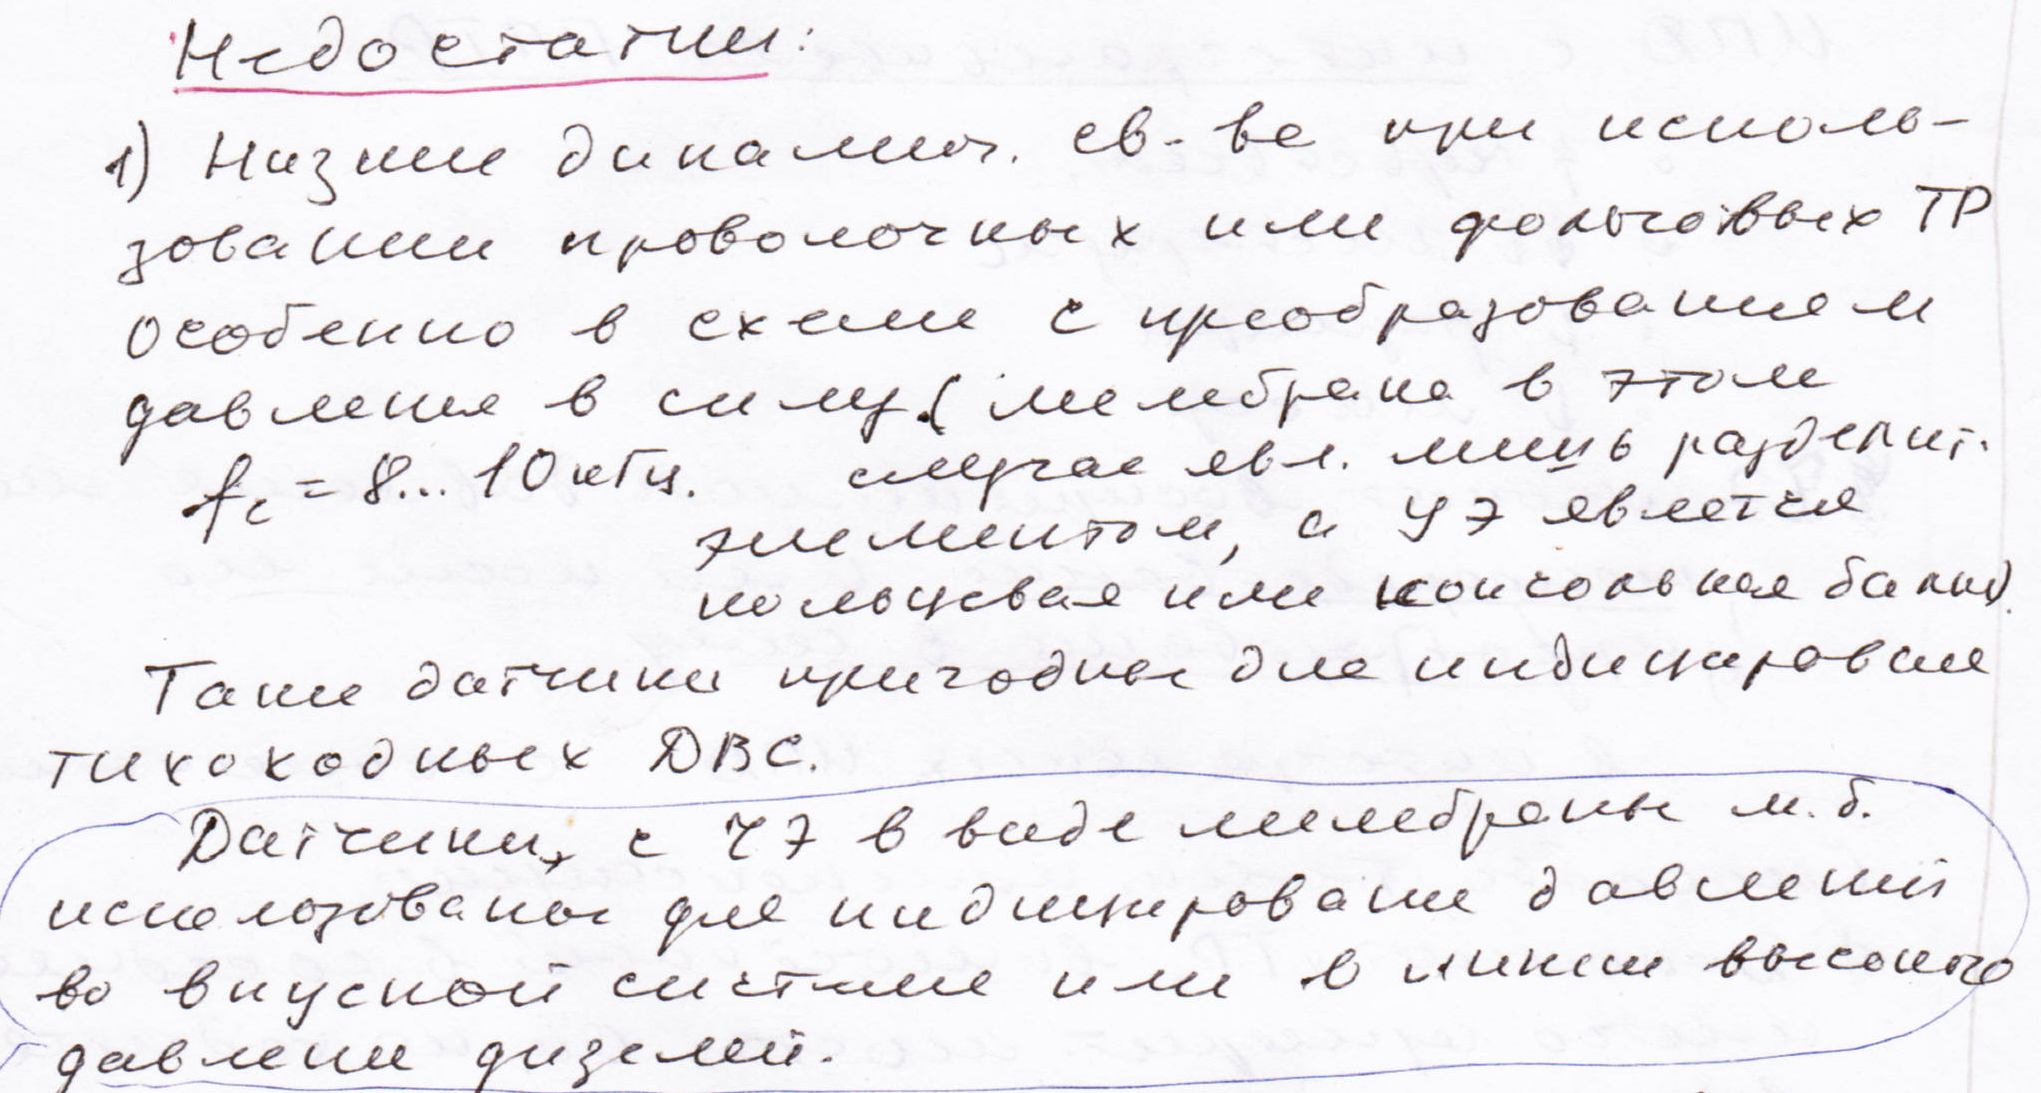 Недостатки:
1) Низкие динамич. св-ва при исполь-
зовании проволочных или фольговых ТР
особенно в схеме с преобразованием
давления в силу. (мембрана в этом
fc = 8...10 кГц. случае явл. лишь разделит.
элементом, а УЭ является
кольцевая или консольная балки)
Такие датчики пригодны для индицирования
тихоходных ДВС.
Датчики, с ЧЭ в виде мембраны м.б.
использованы для индицирования давлений
во впускной системе или в линии высокого
давлени дизелей.